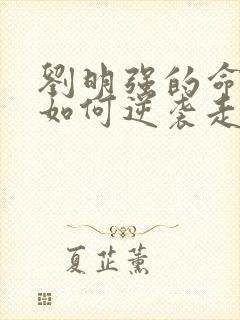 劉明强的命
如何逆袭走
夏芷薰